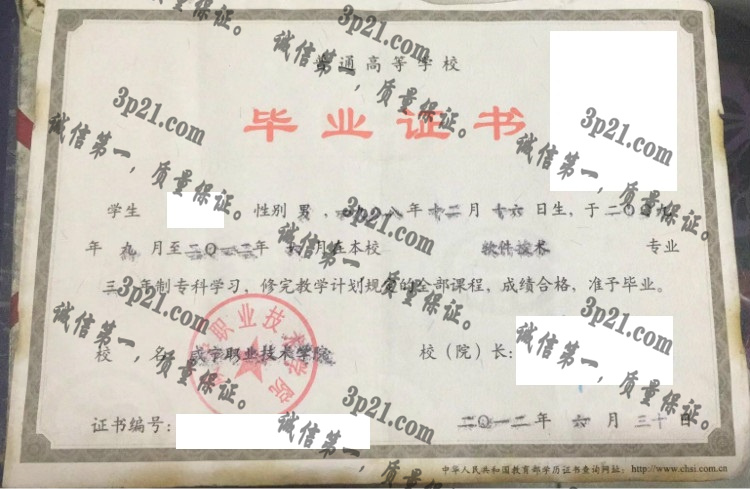 普通高等学校
毕业证书
学生 性别 男，一九 八年十二月十六日生，于二〇〇九
年九月至二〇一二年六月在本校 软件技术 专业
三年制专科学习，修完教学计划规定的全部课程，成绩合格，准予毕业。
校 名：咸宁职业技术学院 校（院）长：
证书编号： 二〇一二年六月三十日
中华人民共和国教育部学历证书查询网址：http://www.chsi.com.cn
3p21.com
诚信第一，质量保证。
3p21.com
诚信第一，质量保证。
3p21.com
诚信第一，质量保证。
3p21.com
诚信第一，质量保证。
3p21.com
诚信第一，质量保证。
3p21.com
诚信第一，质量保证。
3p21.com
诚信第一，质量保证。
3p21.com
诚信第一，质量保证。